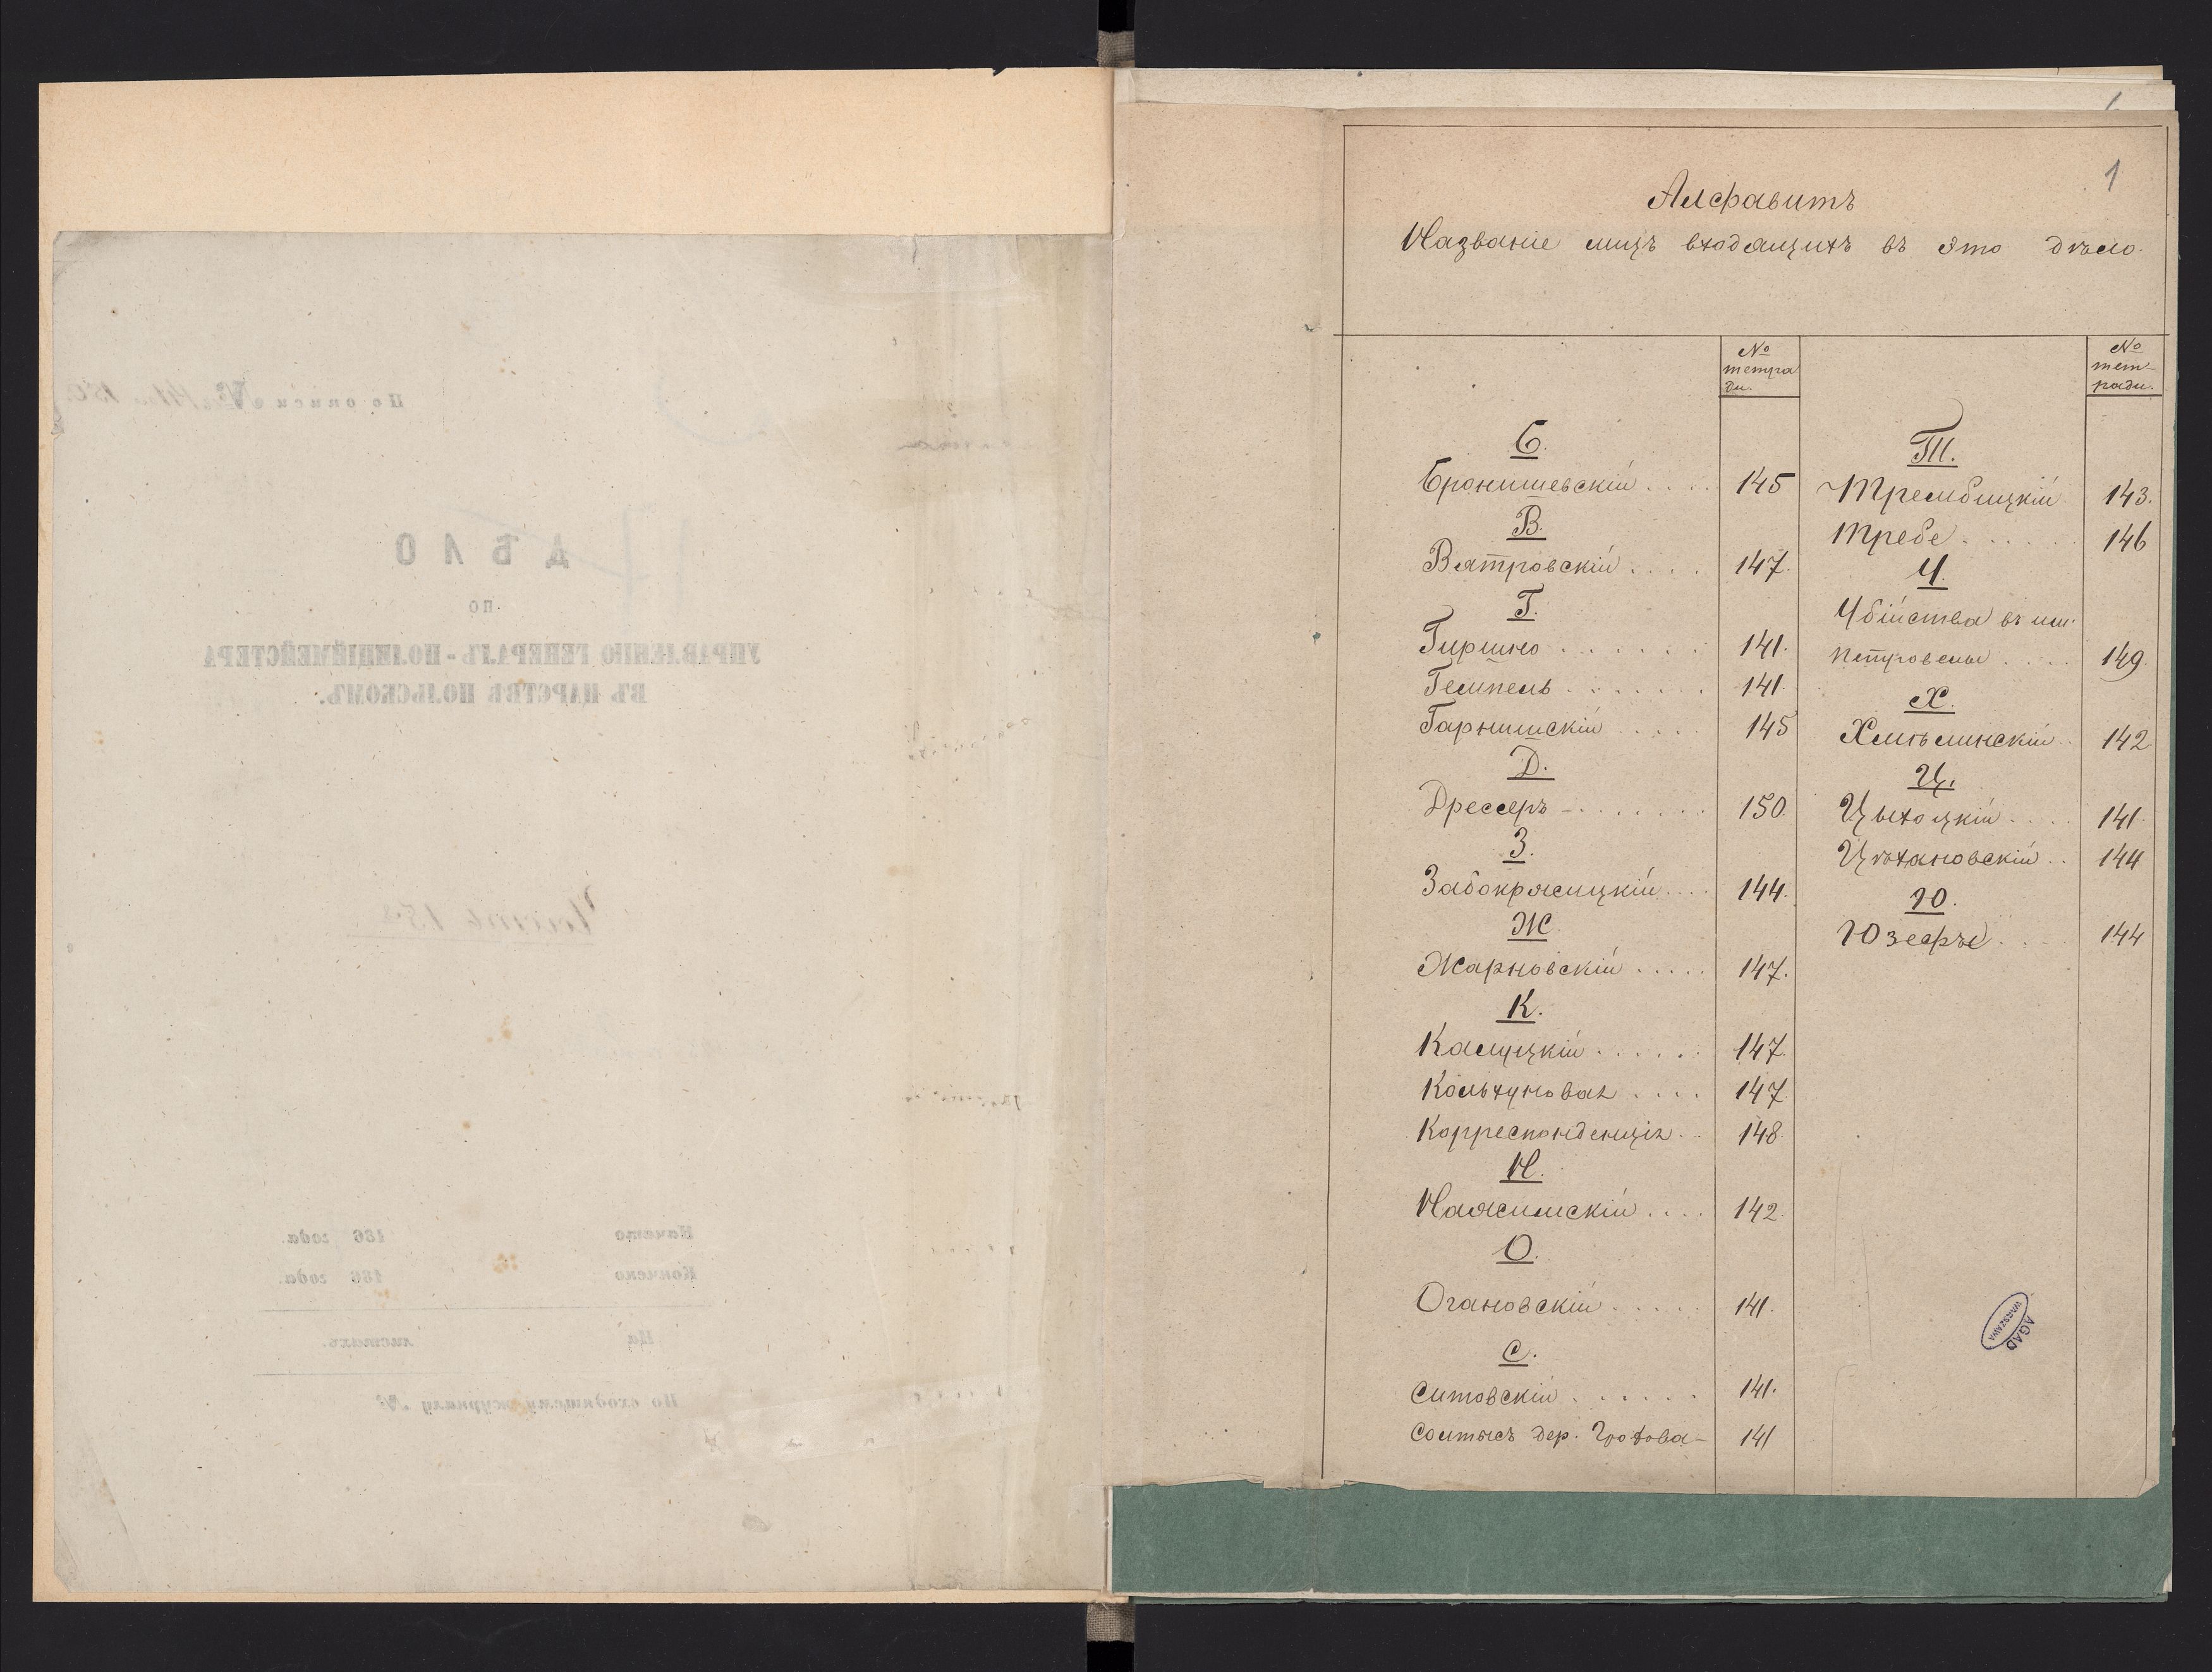 По описи № 141 150
ДѢЛО
ПО
УПРАВЛЕНІЮ ГЕНЕРАЛЪ-ПОЛИЦІЙМЕЙСТЕРА
ВЪ ЦАРСТВѢ ПОЛЬСКОМЪ.
Часть 15
Начато 186 года.
Кончено 186 года.
На листахъ.
По входящему журналу №
1
Алфавитъ
Названіе лицъ входящихъ въ это дѣло.
№
тетра
ди.
Б.
Бронишевскій .... 145
В.
Вятровскій .... 147.
Г.
Гиршно ...... 141.
Гемпель ....... 141.
Гарнишскій ..... 145
Д.
Дрессеръ ....... 150.
З.
Забокржицкій .... 144.
Ж
Жарновскій ..... 147.
К.
Калуцкій ...... 147.
Кольчунова .... 147.
Корреспонденція .. 148.
Н.
Наясимскій .... 142.
О.
Огановскій ..... 141.
С.
Ситовскій ...... 141.
Солтысъ дер. Грохова – 141
№
тет-
ради.
Т.
Трембицкій 143.
Требе ...... 146
У.
Убійства въ им.
Петровелы .... 149.
Х.
Хмѣлинскій .. 142
Ц.
Цыхоцкій .... 141.
Цѣхановскій .. 144
Ю.
Юзефъ .... 144
AGAD
WARSZAWA